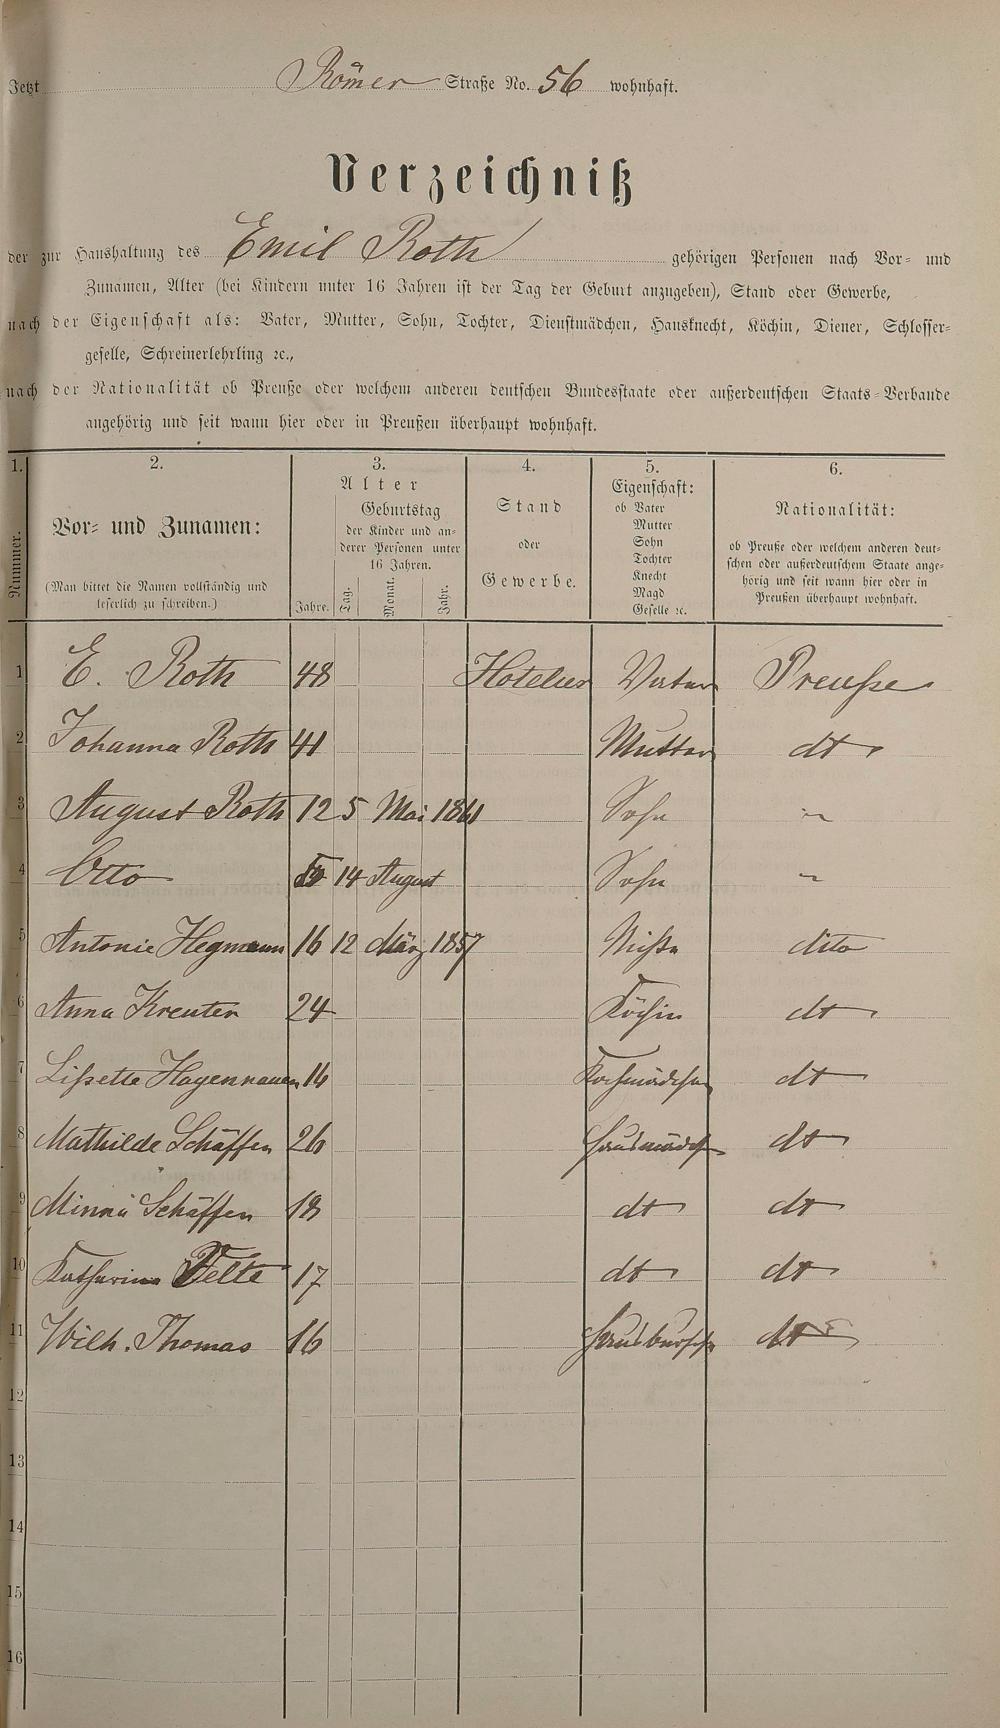 Jetzt Römer Straße No. 56 wohnhaft.
Verzeichniß
der zur Haushaltung des Emil Roth gehörigen Personen nach Vor- und
Zunamen, Alter (bei Kindern unter 16 Jahren ist der Tag der Geburt anzugeben), Stand oder Gewerbe,
nach der Eigenschaft als: Vater, Mutter, Sohn, Tochter, Dienstmädchen, Hausknecht, Köchin, Diener, Schlosser-
geselle, Schreinerlehrling ꝛc.,
nach der Nationalität ob Preuße oder welchem anderen deutschen Bundesstaate oder außerdeutschen Staats-Verbande
angehörig und seit wann hier oder in Preußen überhaupt wohnhaft.
1. 2. 3. 4. 5. 6.
Nummer.
Vor- und Zunamen:
(Man bittet die Namen vollständig und
leserlich zu schreiben.)
Alter
Geburtstag
der Kinder und an-
derer Personen unter
16 Jahren.
Jahre. Tag. Monat. Jahr.
Stand
oder
Gewerbe.
Eigenschaft:
ob Vater
Mutter
Sohn
Tochter
Knecht
Magd
Geselle ꝛc.
Nationalität:
ob Preuße oder welchem anderen deut-
schen oder außerdeutschem Staate ange-
hörig und seit wann hier oder in
Preußen überhaupt wohnhaft.
1 E. Roth 48 Hotelier Vater Preuße
2 Johanna Roth 41 Mutter dt
3 August Roth 12 5 Mai 1861 Sohn "
4 Otto 14 August Sohn "
5 Antonie Hegmann 16 12 März 1857 Nichte dito
6 Anna Kreuter 24 Köchin dt
7 Lißette Hagennauer 16 Kochmädchen dt
8 Mathilde Schäffer 26 Hausmädch dt
9 Minna Schäffer 18 dt dt
10 Katharina Velte 17 dt dt
11 Wilh. Thomas 16 Hausbursche dt
12
13
14
15
16